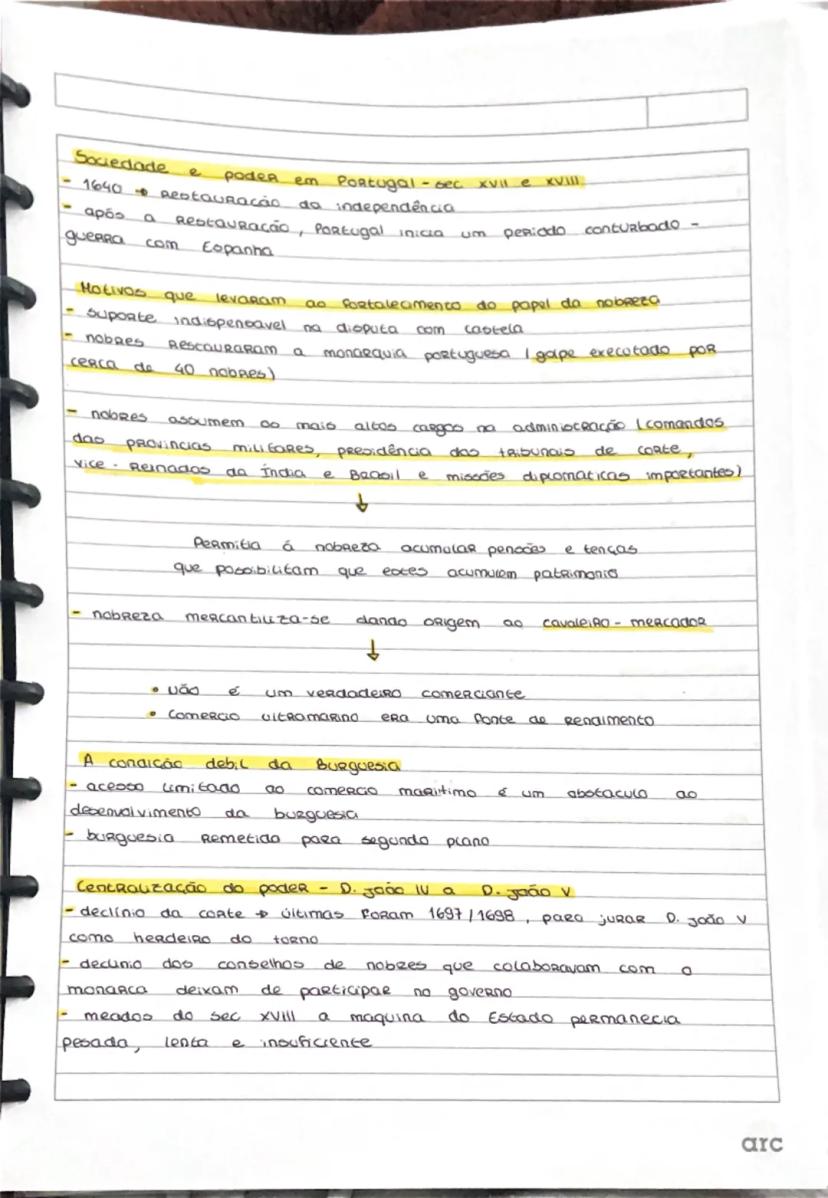 Sociedade e poder em Portugal - sec XVII e XVIII
- 1640 → Restauracão da independência
- após a Restauracão, Portugal inicia um periodo conturbado -
guerra com Espanha
Motivos que levaram ao fortalecimento do papel da nobreza
- suporte indispensavel na disputa com castela
- nobres rescauraram a monarquia portuguesa (golpe executado por
cerca de 40 nobres)
- nobres assumem os mais altos cargos na administração (comandos
das provincias militares, presidência dos tribunais de corte,
vice-reinados da Índia e Brasil e missões diplomaticas importantes)
↓
Permitia á nobreza acumular pensões e tenças
que possibilitam que estes acumulem patrimonio
- nobreza mercantiliza-se dando origem ao cavaleiro-mercador
↓
• Não é um verdadeiro comerciante
• Comercio ultramarino era uma fonte de rendimento
A condição debil da Burguesia
- acesso limitado ao comercio maritimo é um obstaculo ao
desenvolvimento da burguesia
- burguesia remetida para segundo plano
Centralização do poder - D. João IV a D. João V
- declínio da corte → últimas foram 1697/1698, para jurar D. João V
como herdeiro do torno
- declinio dos conselhos de nobres que colaboravam com o
monarca deixam de participar no governo
- meados do sec XVIII a maquina do Estado permanecia
pesada, lenta e insuficiente
arc